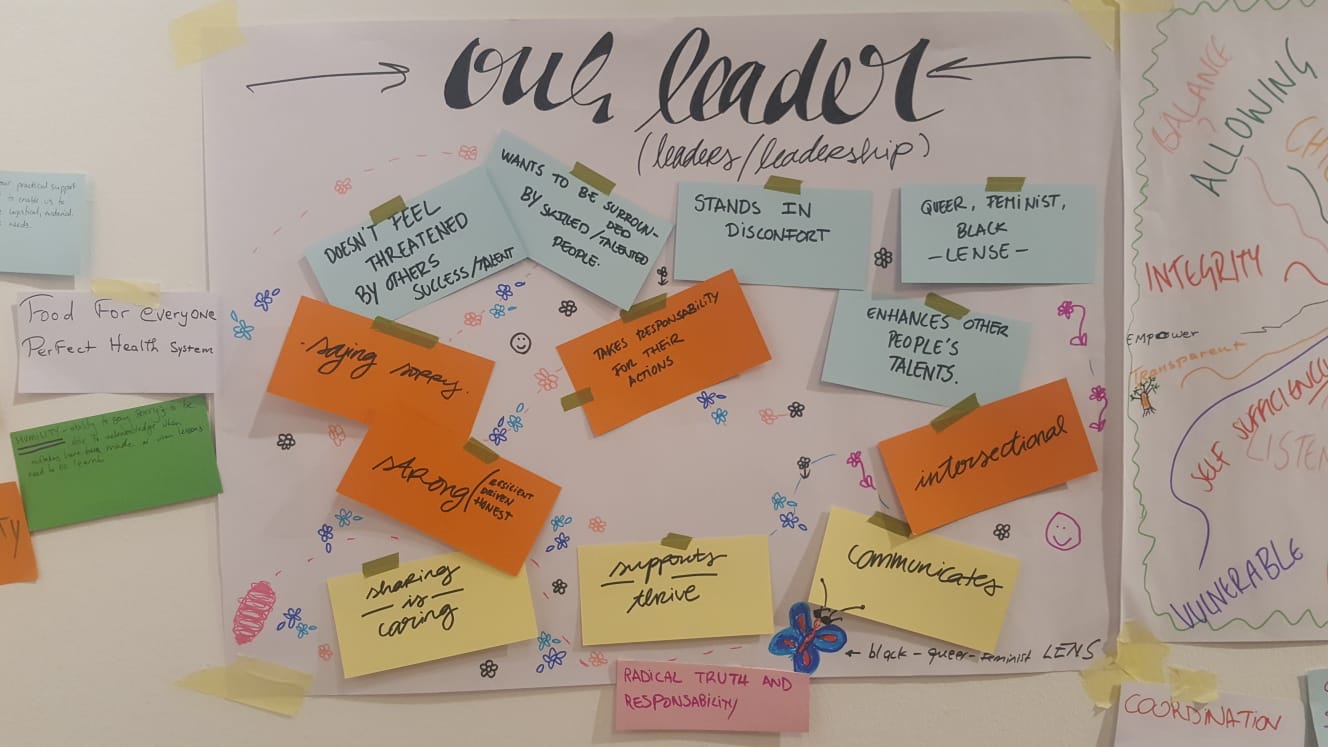 our leader
(leaders/leadership)
DOESN'T FEEL
THREATENED
BY OTHERS
SUCCESS/TALENT
WANTS TO BE SURROUN-
DED
BY SKILLED/TALENTED
PEOPLE.
STANDS IN
DISCONFORT
QUEER, FEMINIST,
BLACK
- LENSE -
. saying sorry.
TAKES RESPONSABILITY
FOR THEIR
ACTIONS
ENHANCES OTHER
PEOPLE'S
TALENTS.
strong/
RESILIENT
DRIVEN
HONEST
intersectional
sharing
- is -
caring
supports
thrive
communicates
← black - queer - feminist LENS
RADICAL TRUTH AND
RESPONSABILITY
practical support
to enable us to
needs.
Food For everyone
Perfect Health System
HUMILITY - ability to say sorry & to be
able to acknowledge when
mistakes have been made or own lessons
need to be learnt
TY
BALANCE
ALLOWING
INTEGRITY
EMPower
Transparent
SELF SUFFICIENCY
LISTEN
VULNERABLE
COORDINATION